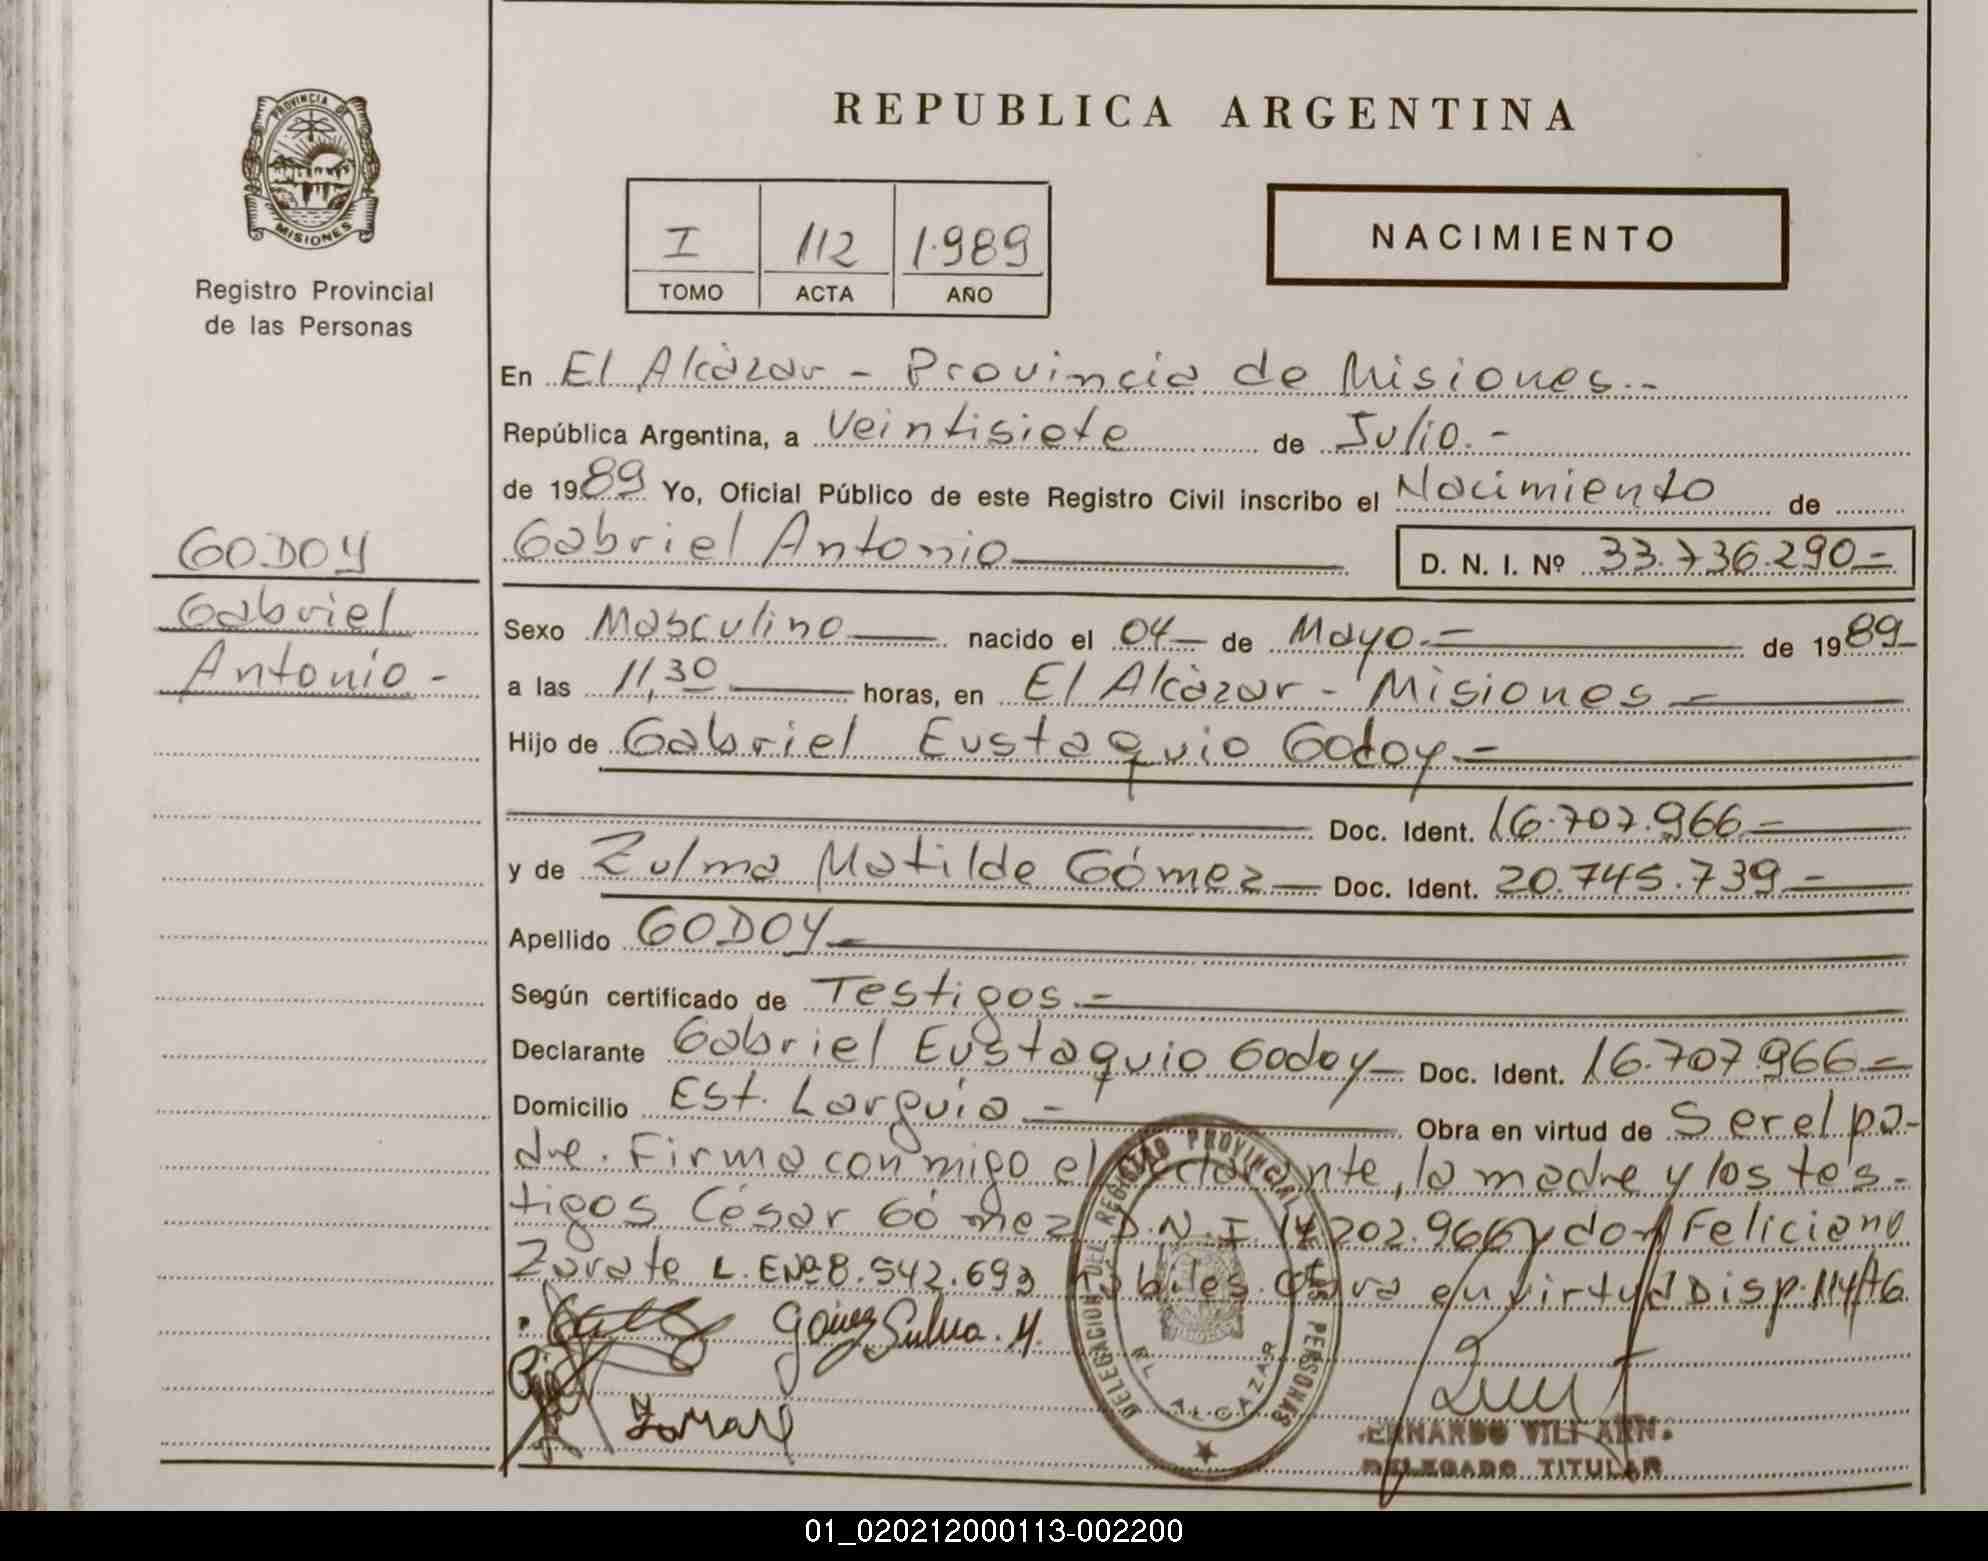 PROVINCIA DE
MISIONES
Registro Provincial
de las Personas
GODOY
Gabriel
Antonio -
REPUBLICA ARGENTINA
I 112 1.989
TOMO ACTA AÑO
NACIMIENTO
En El Alcàzar - Provincia de Misiones.-
República Argentina, a Veintisiete de Julio.-
de 1989 Yo, Oficial Público de este Registro Civil inscribo el Nacimiento de
Gabriel Antonio D. N. I. Nº 33.736.290-
Sexo Masculino nacido el 04 de Mayo.- de 1989-
a las 11,30 horas, en El Alcàzar - Misiones -
Hijo de Gabriel Eustaquio Godoy -
Doc. Ident. 16.707.966 -
y de Zulma Matilde Gómez Doc. Ident. 20.745.739 -
Apellido GODOY
Según certificado de Testigos.-
Declarante Gabriel Eustaquio Godoy Doc. Ident. 16.707.966 -
Domicilio Est. Larguía - Obra en virtud de Ser el pa-
dre. Firma conmigo el declarante, la madre y los tes-
tigos César Gómez D.N.I. 14.202.966 y don Feliciano
Zarate L.ENº8.542.693 hábiles. Obra en virtud Disp. 114/76.
DELEGACION DEL REGISTRO PROVINCIAL DE LAS PERSONAS
EL ALCAZAR
DELEGADO TITULAR
01_020212000113-002200